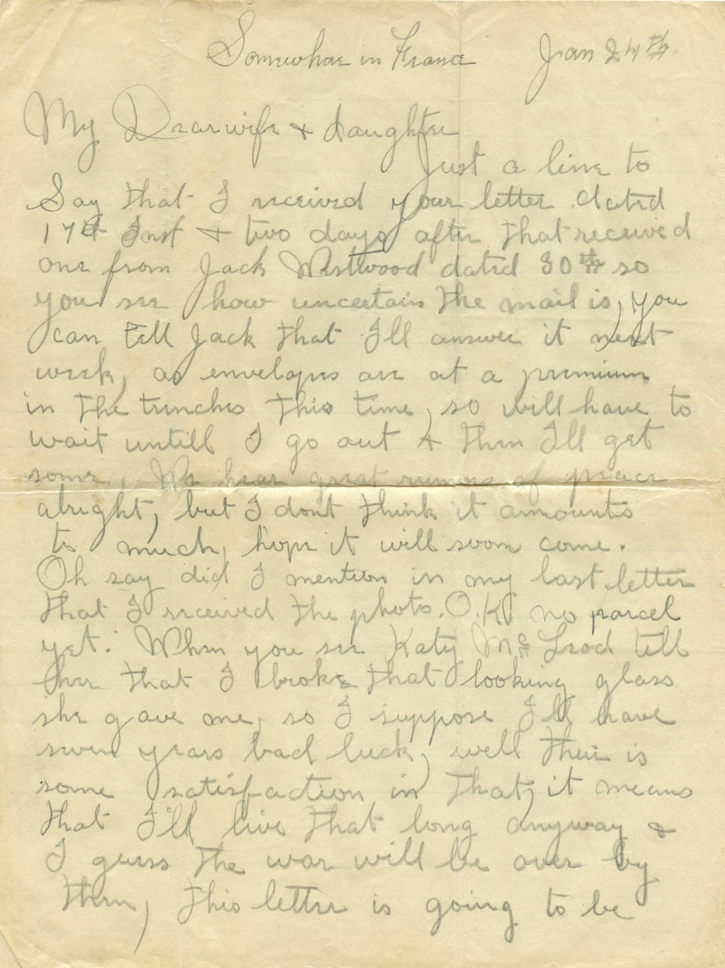 Somewhar in France Jan 24th.
My Dear wife & daughter
Just a line to
Say that I received your letter dated
17th Inst & two days after that received
one from Jack Westwood dated 30th so
you see how uncertain the mail is, you
can tell Jack that I'll answer it next
week, as envelopes are at a premium
in the trenches this time, so will have to
wait untill I go out & then I'll get
some. We hear great rumors of peace
alright, but I dont think it amounts
to much, hope it will soon come.
Oh say did I mention in my last letter
that I received the photo. O.K. no parcel
yet. When you see Katy McLeod tell
her that I broke that looking glass
she gave me, so I suppose I'll have
seven years bad luck, well their is
some satisfaction in that, it means
that I'll live that long anyway &
I guess the war will be over by
then, This letter is going to be